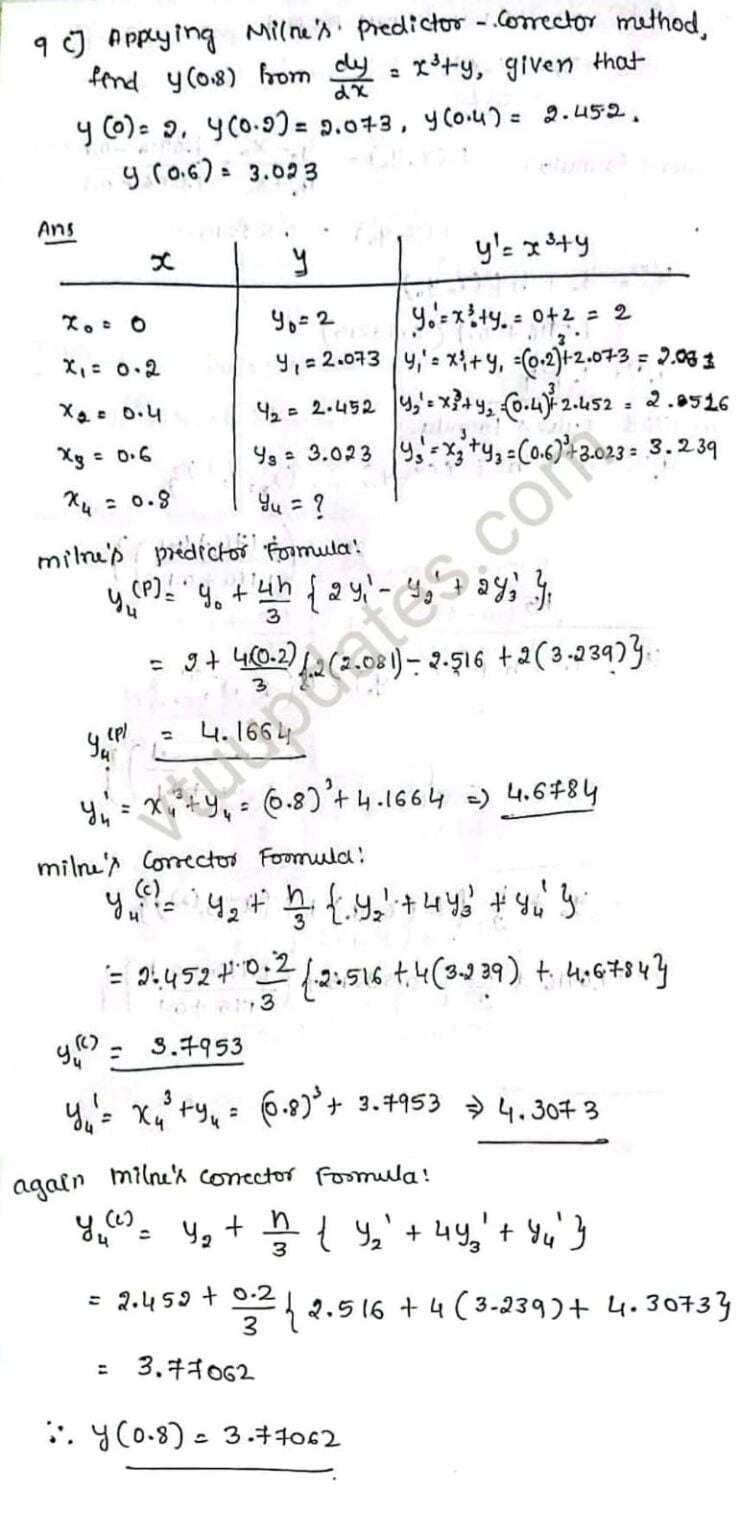 9 c] Applying Milne's predictor - corrector method,
find y(0.8) from dy/dx = x³+y, given that
y(0)= 2, y(0.2)= 2.073, y(0.4)= 2.452.
y(0.6)= 3.023
Ans
x y y' = x³+y
x₀ = 0 y₀ = 2 y₀' = x₀³+y₀ = 0+2 = 2
x₁ = 0.2 y₁ = 2.073 y₁' = x₁³+y₁ = (0.2)³+2.073 = 2.081
x₂ = 0.4 y₂ = 2.452 y₂' = x₂³+y₂ = (0.4)³+2.452 = 2.0516
x₃ = 0.6 y₃ = 3.023 y₃' = x₃³+y₃ = (0.6)³+3.023 = 3.239
x₄ = 0.8 y₄ = ?
milne's predictor formula:
y₄⁽ᵖ⁾ = y₀ + 4h/3 { 2y₁' - y₂' + 2y₃' }
= 2 + 4(0.2)/3 {2(2.081) - 2.516 + 2(3.239)}
y₄⁽ᵖ⁾ = 4.1664
y₄' = x₄³+y₄ = (0.8)³ + 4.1664 ⇒ 4.6784
milne's corrector formula:
y₄⁽ᶜ⁾ = y₂ + h/3 { y₂' + 4y₃' + y₄' }
= 2.452 + 0.2/3 {2.516 + 4(3.239) + 4.6784}
y₄⁽ᶜ⁾ = 3.7953
y₄' = x₄³ + y₄ = (0.8)³ + 3.7953 ⇒ 4.3073
again milne's corrector formula:
y₄⁽ᶜ⁾ = y₂ + h/3 { y₂' + 4y₃' + y₄' }
= 2.452 + 0.2/3 { 2.516 + 4(3.239) + 4.3073}
= 3.77062
∴ y(0.8) = 3.77062
vtuupdates.com